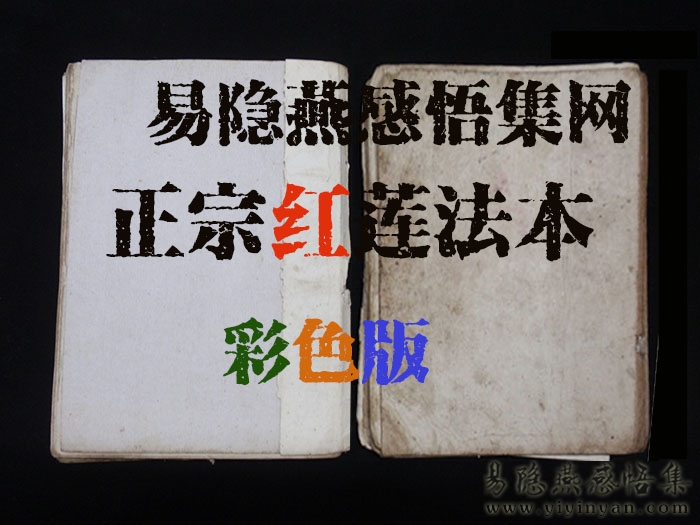 易隐燕感悟集网
正宗红莲法本
彩色版
易隐燕感悟集
www.yiyinyan.com